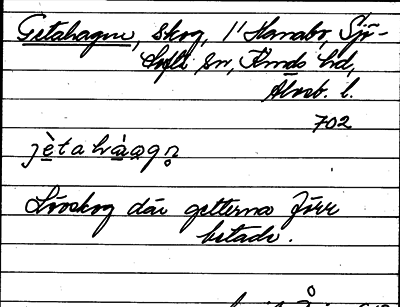 Getahagne, skog, 1/1 Hanabo, Sjö-
tofta sn, Kinds hd,
Älvsb. l.
702
jètahàagn̥
Lövskog där getterna förr
betade.